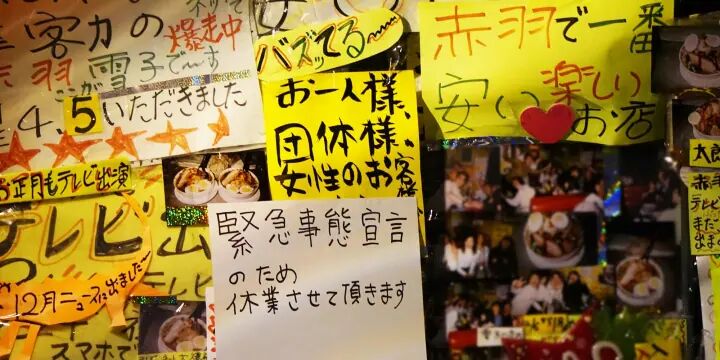 客力の
爆走中
赤羽が雪子で〜す
4.5いただきました
お正月もテレビ出演
テレビ出
12月ニュースに出ました〜
テレビ
スマホで
バズッてる〜
お一人様、
団体様、
女性のお客様
緊急事態宣言
のため
休業させて頂きます
赤羽で一番
安い楽しい
お店
太郎
赤羽
テレビ
また、
出ま